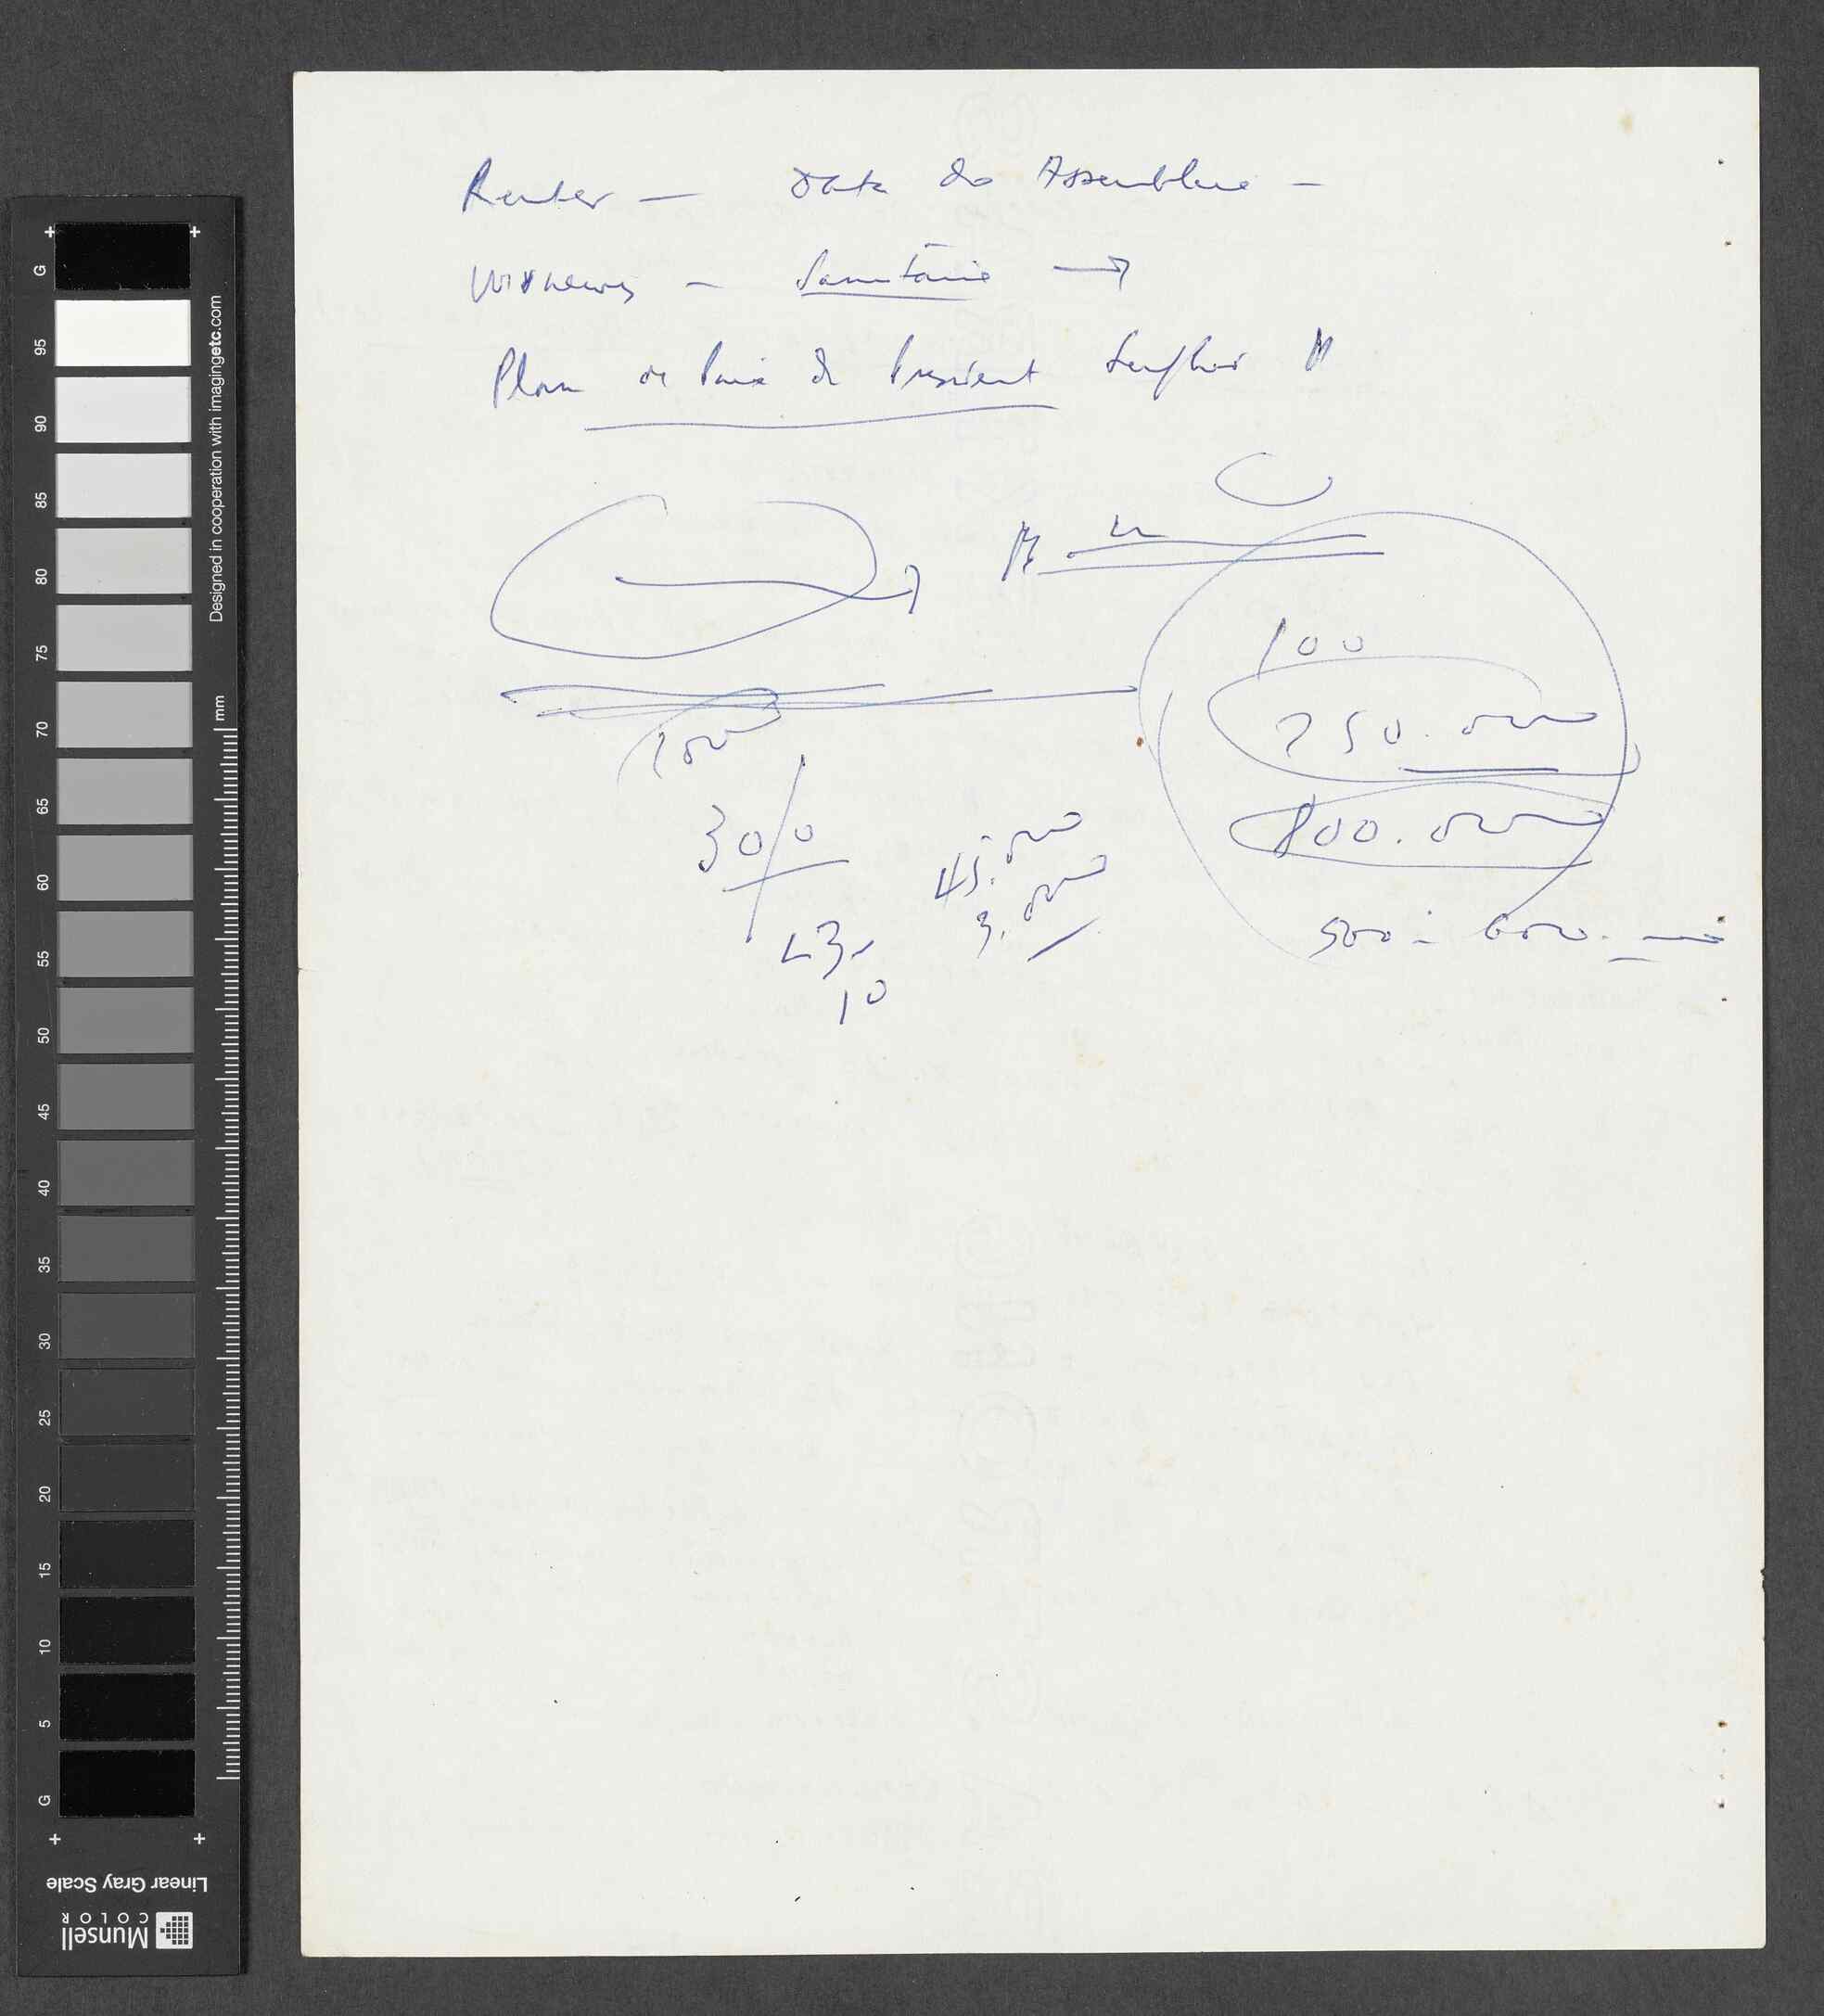 Reuter — Date de Assemblée —
— Sanitaire →
Plan de Paix du President Senghor
100
250.000
800.000
300
45.000
3.000
500 - 600.
10
G
95
90
85
80
75
70
65
60
55
50
45
40
35
30
25
20
15
10
5
G
mm
Designed in cooperation with imagingetc.com
Linear Gray Scale
Munsell
COLOR